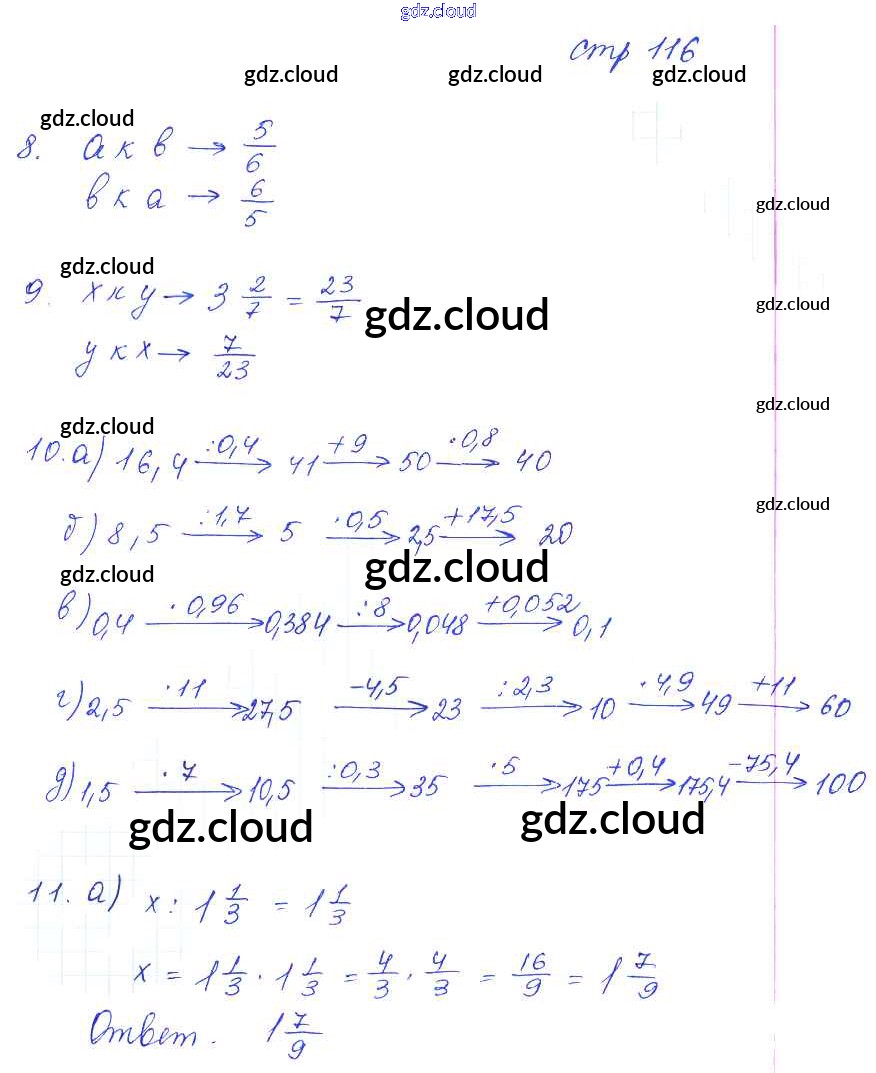 gdz.cloud
стр 116
gdz.cloud gdz.cloud gdz.cloud
gdz.cloud
8. а к в → 5/6
в к а → 6/5
gdz.cloud
gdz.cloud
9. х к у → 3 2/7 = 23/7
gdz.cloud
gdz.cloud
у к х → 7/23
gdz.cloud
gdz.cloud
10. а) 16,4 :0,4→ 41 +9→ 50 ·0,8→ 40
gdz.cloud
б) 8,5 :1,7→ 5 ·0,5→ 2,5 +17,5→ 20
gdz.cloud
gdz.cloud
в) 0,4 ·0,96→ 0,384 :8→ 0,048 +0,052→ 0,1
г) 2,5 ·11→ 27,5 -4,5→ 23 :2,3→ 10 ·4,9→ 49 +11→ 60
д) 1,5 ·7→ 10,5 :0,3→ 35 ·5→ 175 +0,4→ 175,4 -75,4→ 100
gdz.cloud gdz.cloud
11. а) х : 1 1/3 = 1 1/3
х = 1 1/3 · 1 1/3 = 4/3 · 4/3 = 16/9 = 1 7/9
Ответ. 1 7/9